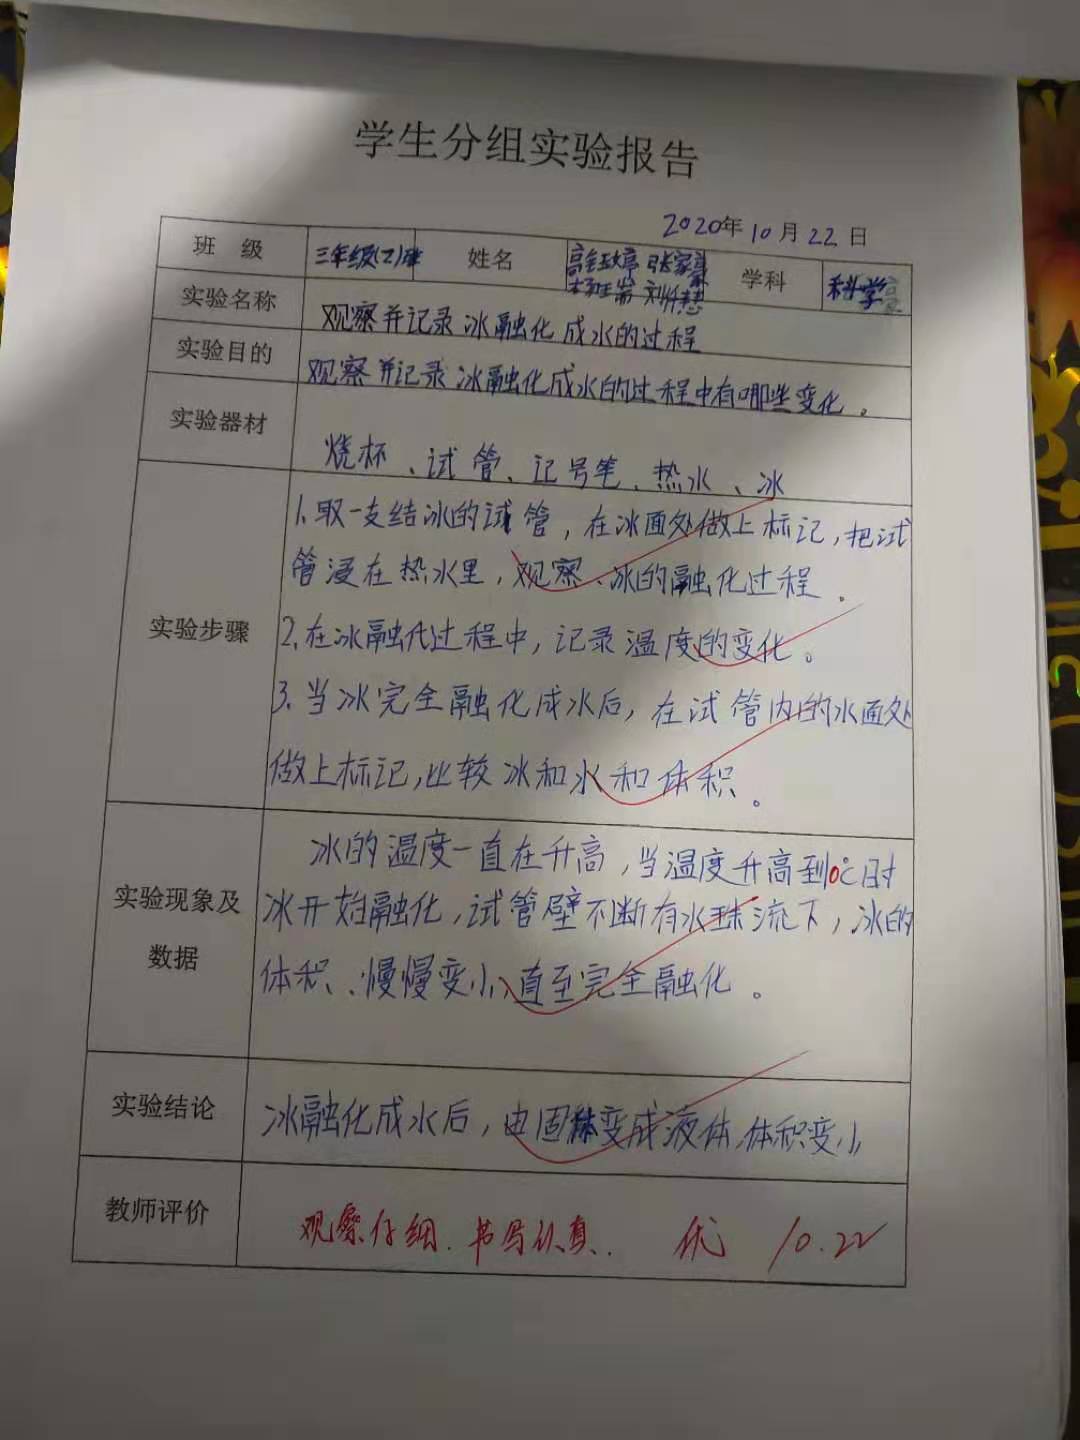 学生分组实验报告
2020年10月22日
班 级 三年级(2)班 姓名 张家 刘 学科 科学
实验名称 观察并记录冰融化成水的过程
实验目的 观察并记录冰融化成水的过程中有哪些变化。
实验器材 烧杯、试管、记号笔、热水、冰
1.取一支结冰的试管，在冰面处做上标记，把试
管浸在热水里，观察、冰的融化过程。
实验步骤 2.在冰融化过程中，记录温度的变化。
3.当冰完全融化成水后，在试管内的水面处
做上标记，比较冰和水和体积。
冰的温度一直在升高，当温度升高到0℃时
实验现象及 冰开始融化，试管壁不断有水珠流下，冰的
数据 体积、慢慢变小，直至完全融化。
实验结论 冰融化成水后，由固体变成液体，体积变小
教师评价 观察仔细.书写认真. 优 10.22